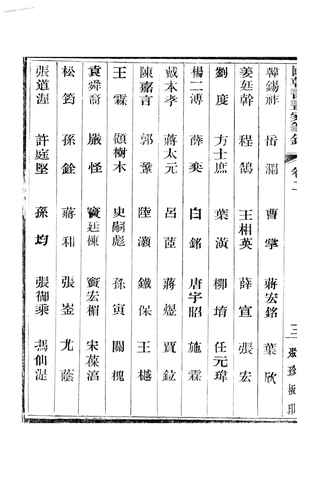 國朝書畫家筆錄 卷二 三 聚珍板印
韓錫祚 岳瀾 曹擎 蔣宏銘 葉欣
姜廷幹 程鵠 王相英 薛宣 張宏
劉度 方士庶 葉潢 柳堉 任元瑋
楊二溥 薛奕 白銘 唐宇昭 施霖
戴本孝 蔣太元 呂 蔣煜 賈鉝
陳嘉言 郭鞏 陸灝 鐵保 王樾
王霖 顧樹木 史嗣彪 孫寅 關槐
袁舜裔 嚴怪 竇廷棟 竇宏楣 宋葆淳
松筠 孫銓 蔣和 張崟 尤蔭
張道渥 許庭堅 孫均 張御乘 馮仙湜